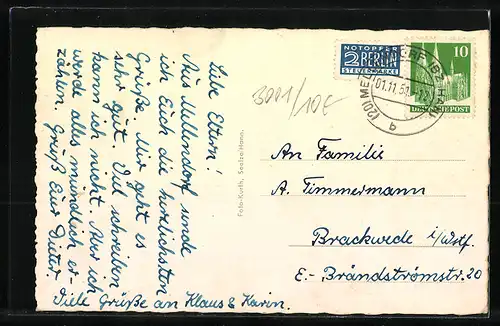 Liebe Eltern!
Aus Mellendorf sende
ich Euch die herzlichsten
Grüße. Mir geht es
sehr gut. Viel schreiben
kann ich nicht. Aber ich
werde alles mündlich er-
zählen. Gruß Euer Dieter
Viele Grüße an Klaus & Karin.
3001/10E
Foto-Kurth, Seelze-Hann.
NOTOPFER
2 BERLIN
STEUERMARKE
01.11.51
10
DEUTSCHE POST
An Familie
A. Timmermann
Brackwede i/Westf.
E.-Brändströmstr. 20